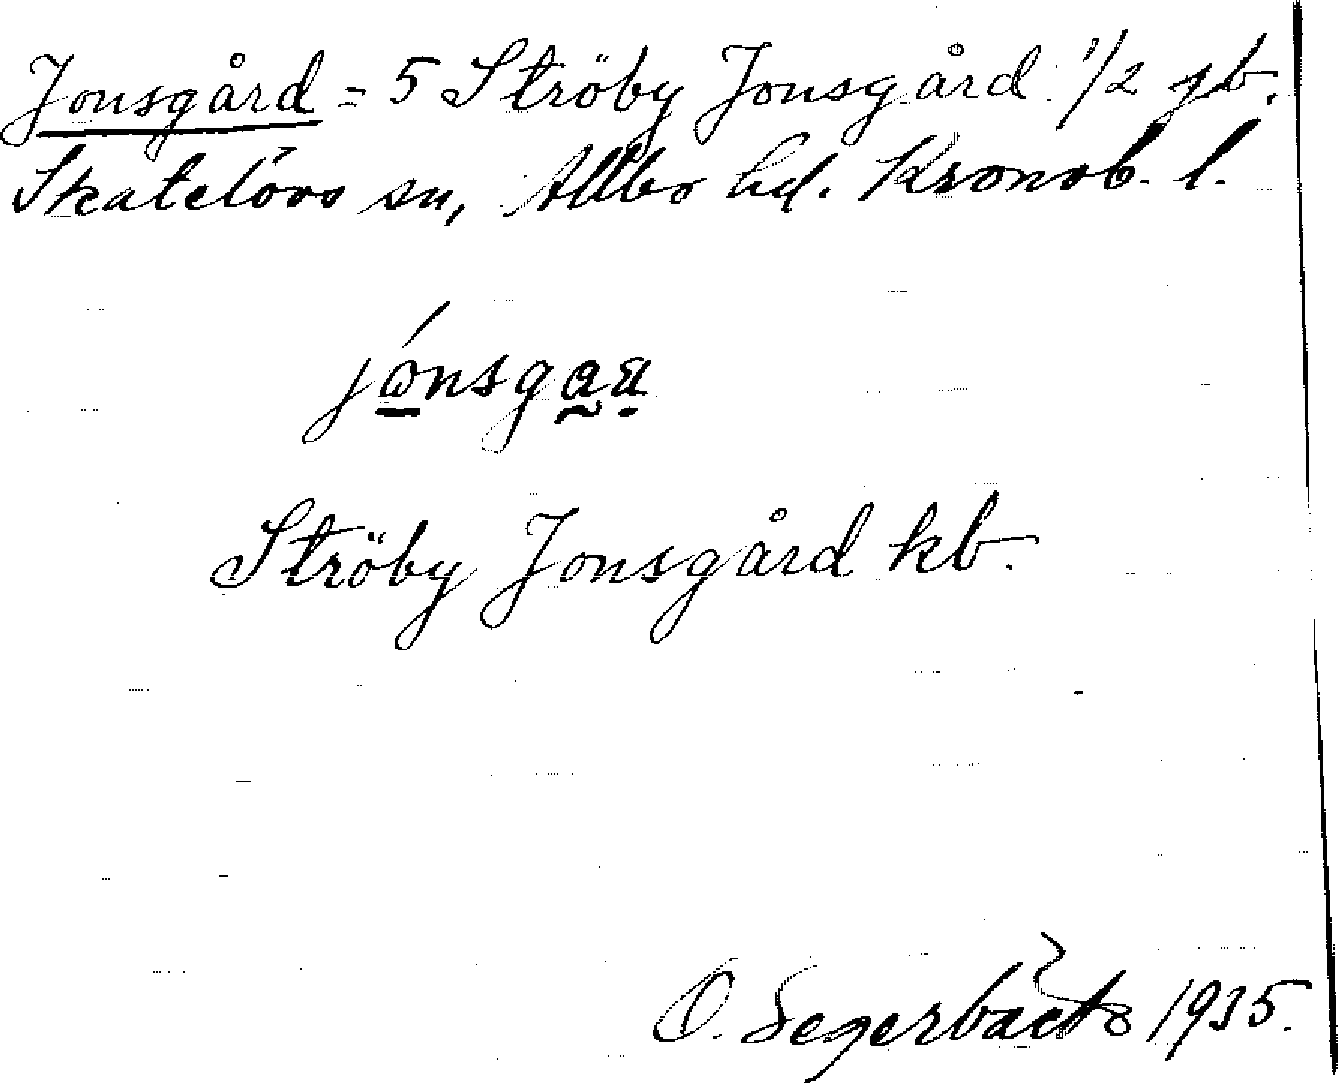 Jonsgård = 5 Ströby Jonsgård 1/2 jb.
Skatelövs sn, Allbo hd. Kronob. l.
Ströby Jonsgård kb.
O. Segerbäck 1935.